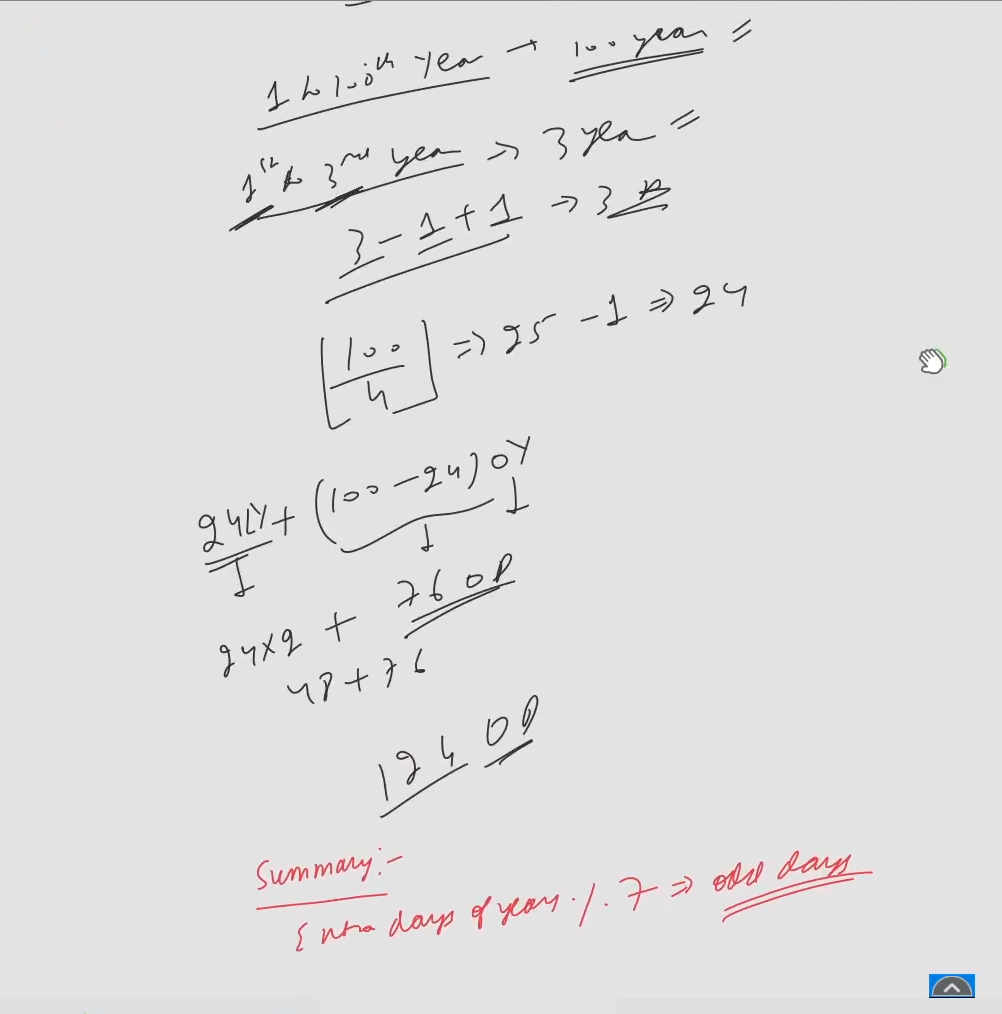 1 to 100th year → 100 year =
1st to 3rd year => 3 year =
3 - 1 + 1 → 3
[100/4] => 25 - 1 => 24
24LY + (100 - 24) OY
24x2 + 76 OD
48 + 76
124 OD
Summary:-
Extra days of years % 7 => odd days